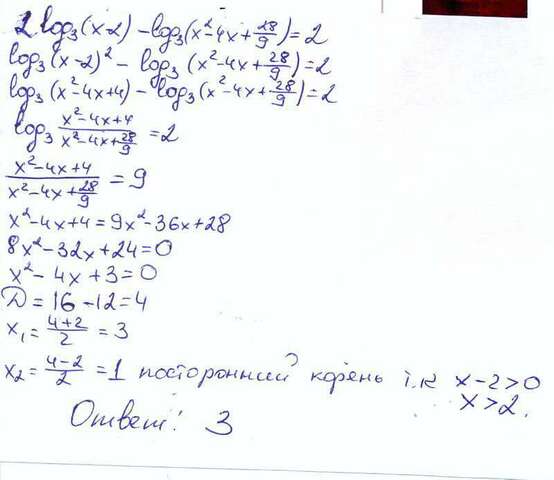 2 log₃(x-2) - log₃(x²-4x+28/9)=2
log₃(x-2)² - log₃(x²-4x+28/9)=2
log₃(x²-4x+4) - log₃(x²-4x+28/9)=2
log₃ (x²-4x+4)/(x²-4x+28/9) =2
(x²-4x+4)/(x²-4x+28/9) = 9
x²-4x+4=9x²-36x+28
8x²-32x+24=0
x²-4x+3=0
D=16-12=4
x₁= (4+2)/2 = 3
x₂= (4-2)/2 =1 посторонний корень т.к x-2>0
x>2.
Ответ: 3